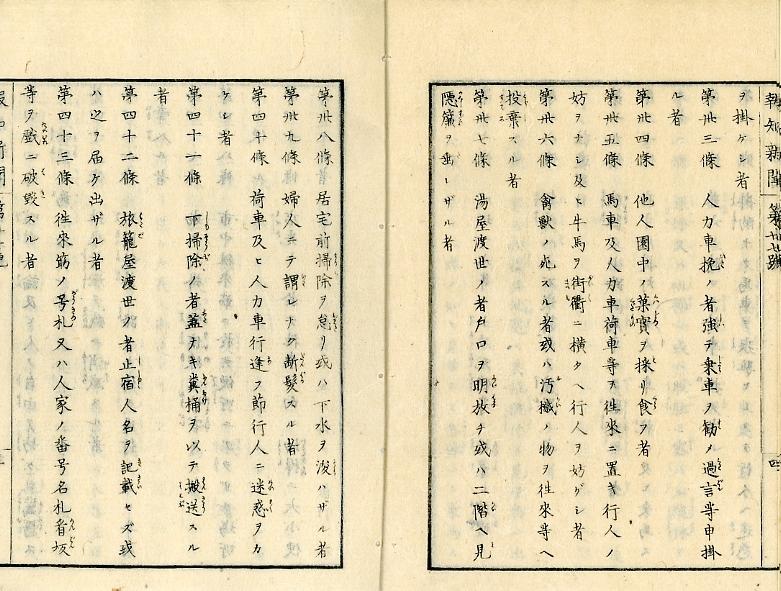 報知新聞 第廿七號
ヲ掛ケシ者
第卅三條 人力車挽ノ者強テ乗車ヲ勧メ過言等申掛
ル者
第卅四條 他人園中ノ菓實ヲ採リ食ヲ者
第卅五條 馬車及人力車荷車等ヲ徃來ニ置キ行人ノ
妨ヲナシ及ヒ牛馬ヲ街衢ニ横タヘ行人ヲ妨ゲシ者
第卅六條 禽獸ノ死スル者或ハ汚穢ノ物ヲ徃來等ヘ
投棄スル者
第卅七條 湯屋渡世ノ者戸口ヲ明放チ或ハ二階ヘ見
隠簾ヲ出シザル者
四
第卅八條 居宅前掃除ヲ怠リ或ハ下水ヲ浚ハザル者
第卅九條 婦人ニテ謂レナク断髪スル者
第四十條 荷車及ヒ人力車行逢フ節行人ニ迷惑ヲカ
ケシ者
第四十一條 下掃除ノ者蓋ナキ糞桶ヲ以テ搬送スル
者
第四十二條 旅籠屋渡世ノ者止宿人名ヲ記載セズ或
ハ之ヲ届ケ出ザル者
第四十三條 徃來筋ノ号札又ハ人家ノ番号名札看板
等ヲ戯ニ破毀スル者